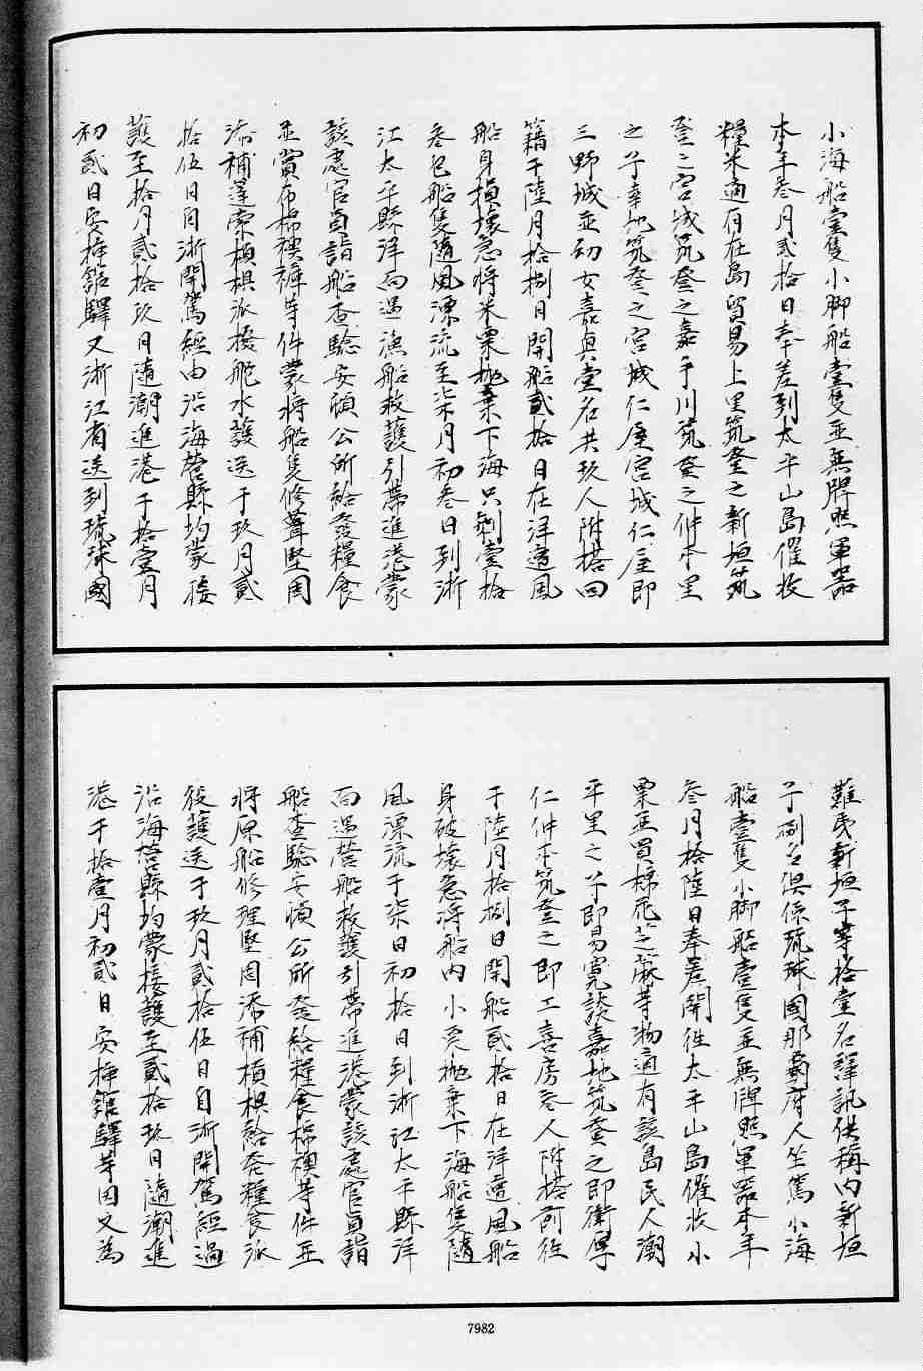 小海船壹隻小脚船壹隻並無牌照軍器
本年叁月貳拾日奉差到太平山島催收
糧米適有在島貿易上里筑登之新垣筑
登之宮城筑登之嘉手川筑登之仲本里
之子幸地筑登之宮城仁屋宮城仁屋即
三野城並幼女嘉真壹名共玖人附搭回
籍于陸月拾捌日開船貳拾日在洋遭風
船身損壞急將米粟抛棄下海只剩壹拾
叁包船隻隨風漂流至柒月初叁日到浙
江太平縣洋面遇漁船救護引帶進港蒙
該處官員詣船查驗安頓公所給發糧食
並賞布棉襖褲等件蒙將船隻修葺堅固
添補篷索槓椇派撥舵水護送于玖月貳
拾伍日自浙開駕經由沿海營縣均蒙接
護至拾月貳拾玖日隨潮進港于拾壹月
初貳日安揷館驛又浙江省送到琉球國
難民新垣子等拾壹名譯訊供稱内新垣
子捌名俱係琉球國那霸府人坐駕小海
船壹隻小脚船壹隻並無牌照軍器本年
叁月拾陸日奉差開徃太平山島催收小
粟並買棉花芝蔴等物適有該島民人潮
平里之子即易寛談嘉地筑登之即衛厚
仁仲本筑登之即工喜房叁人附搭前徃
于陸月拾捌日開船貳拾日在洋遭風船
身破壞急将船内小米抛棄下海船隻隨
風漂流于柒日初拾日到浙江太平縣洋
面遇營船救護引帶進港蒙該處官員詣
船查驗安頓公所發給糧食棉襖等件並
将原船修理堅固添補槓椇給發糧食派
役護送于玖月貳拾伍日自浙開駕經過
沿海營縣均蒙接護至貳拾玖日隨潮進
港于拾壹月初貳日安揷館驛等因又為
7982